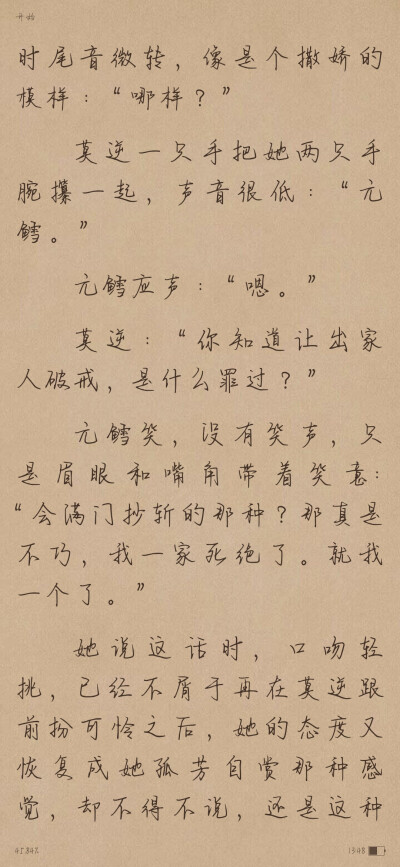 开始
时尾音微转，像是个撒娇的
模样：“哪样？”
莫逆一只手把她两只手
腕攥一起，声音很低：“元
鳕。”
元鳕应声：“嗯。”
莫逆：“你知道让出家
人破戒，是什么罪过？”
元鳕笑，没有笑声，只
是眉眼和嘴角带着笑意：
“会满门抄斩的那种？那真是
不巧，我一家死绝了。就我
一个了。”
她说这话时，口吻轻
挑，已经不屑于再在莫逆跟
前扮可怜之后，她的态度又
恢复成她孤芳自赏那种感
觉，却不得不说，还是这种
45.84% 13:48